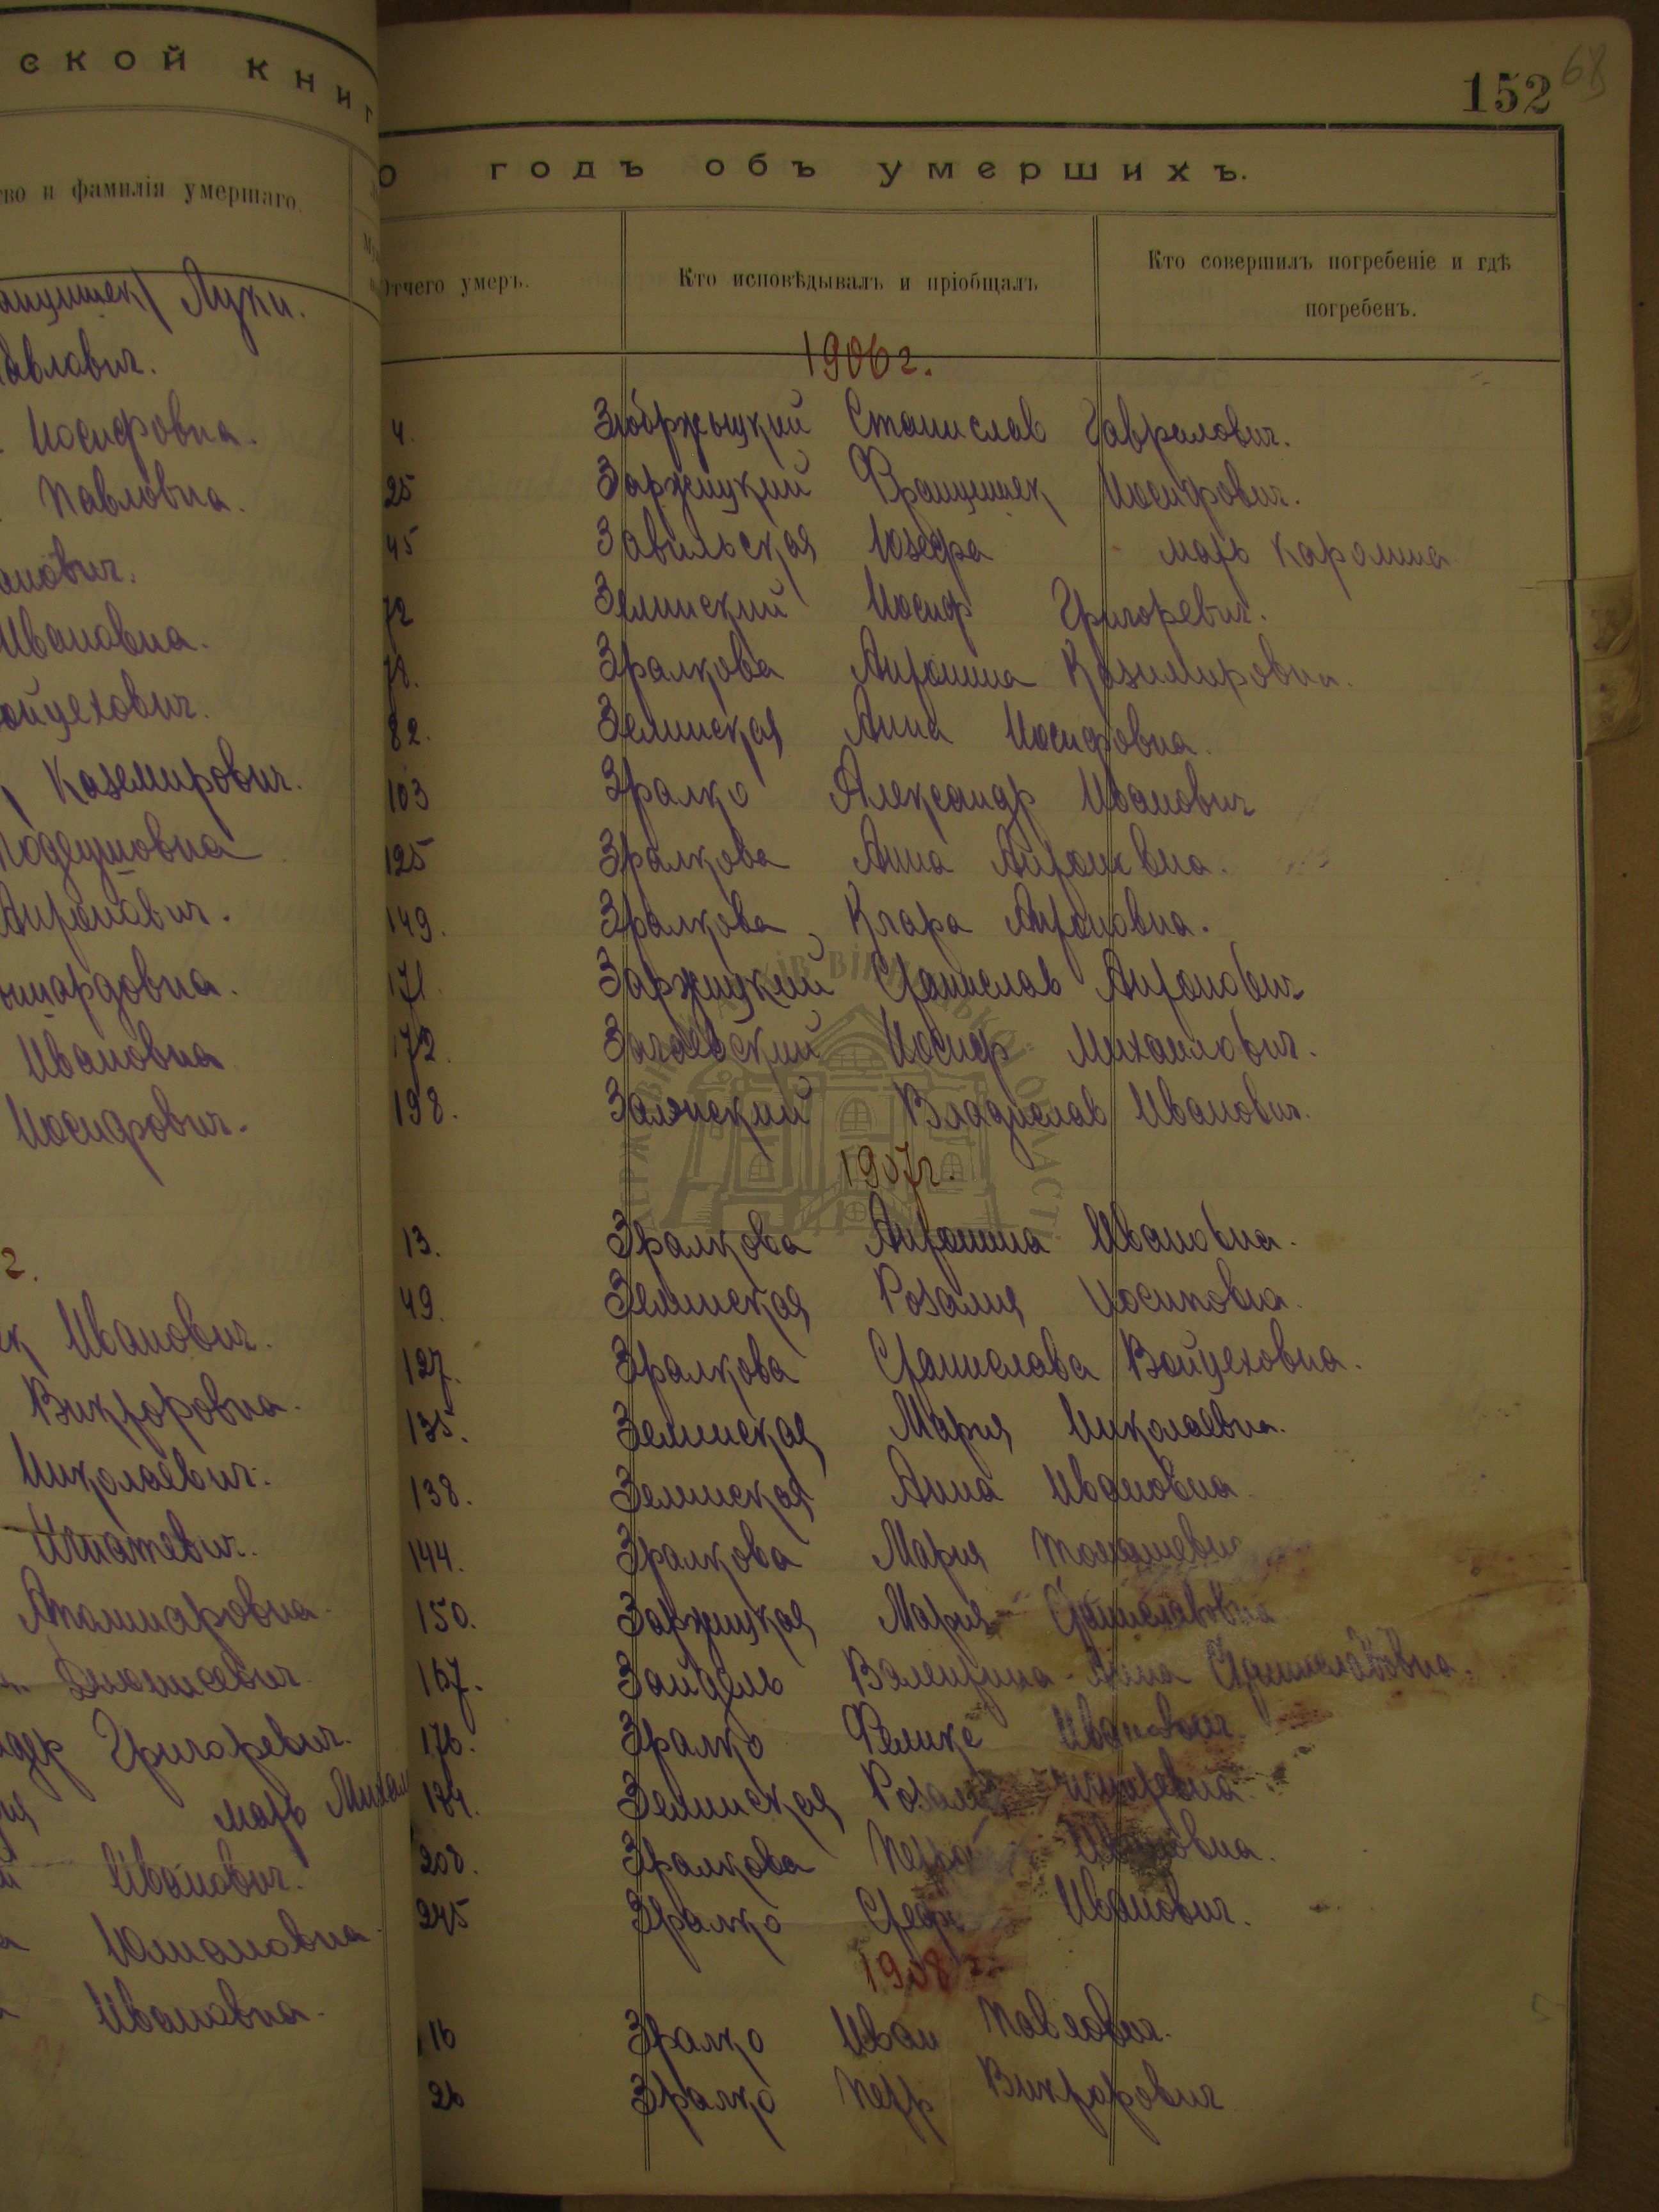 ской книг
во и фамилія умершаго.
Луки.
авлович.
Иосифовна.
Павловна.
анович.
Ивановна.
ойцехович.
Каземирович.
Антонович.
Ивановна
Иосифович.
г.
Иванович.
Викторовна.
Николаевич.
Игнатевич.
Григоревич.
мать
Иванович.
Юлиановна.
Ивановна.
152
68
о годъ объ умершихъ.
Отчего умеръ.
Кто исповѣдывалъ и пріобщалъ
Кто совершилъ погребеніе и гдѣ
погребенъ.
1906 г.
4. Станислав
25 Заржицкий Францишек Иосифович.
45 Завильская Юзефа мать Каролина
72 Зелинский Иосиф Григоревич.
78. Зралкова Антонина Казимировна.
82. Зелинская Анна Иосифовна.
103 Зралко Александр Иванович
125 Зралкова Анна Антоновна.
149. Зралкова Клара Антоновна.
171. Заржицкий Станислав Антонович
172. Иосиф Михаилович.
198. Залэнский Владислав Иванович.
1907 г.
13. Зралкова Антонина Ивановна.
49. Зелинская Розалия Иосиповна.
127. Зралкова Станислава Войцеховна.
135. Зелинская Мария Николаевна.
138. Зелинская Анна Ивановна
144. Зралкова Мария
150. Заржицкая Мария Станиславовна
167. Валентина-Анна Станиславовна.
176. Зралко Феликс Иванович.
184. Зелинская
208. Зралкова Ивановна.
245 Зралко Иванович.
1908 г.
16 Зралко Иван Павлович.
26 Зралко Петр Викторович